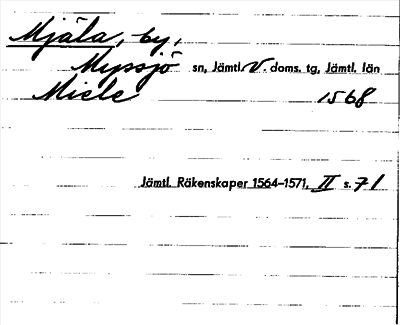 Mjäla, by,
Myssjö sn, Jämtl. V. doms. tg, Jämtl. län
Miele 1568
Jämtl. Räkenskaper 1564–1571, II s. 71